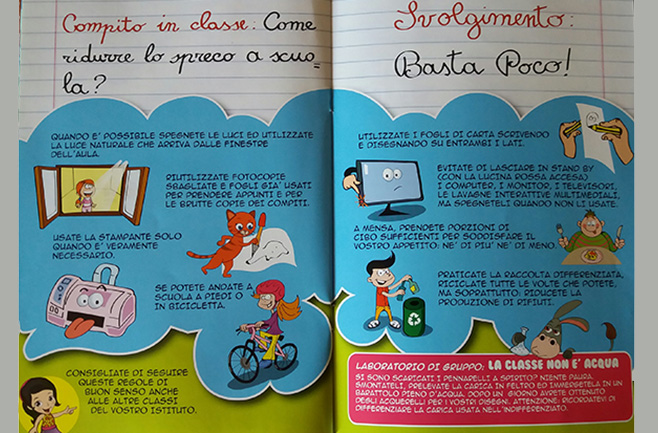 Compito in classe: Come
ridurre lo spreco a scuo=
la?
QUANDO E' POSSIBILE SPEGNETE LE LUCI ED UTILIZZATE
LA LUCE NATURALE CHE ARRIVA DALLE FINESTRE
DELL'AULA.
RIUTILIZZATE FOTOCOPIE
SBAGLIATE E FOGLI GIA' USATI
PER PRENDERE APPUNTI E PER
LE BRUTTE COPIE DEI COMPITI.
USATE LA STAMPANTE SOLO
QUANDO E' VERAMENTE
NECESSARIO.
SE POTETE ANDATE A
SCUOLA A PIEDI O
IN BICICLETTA.
CONSIGLIATE DI SEGUIRE
QUESTE REGOLE DI
BUON SENSO ANCHE
ALLE ALTRE CLASSI
DEL VOSTRO ISTITUTO.
Svolgimento:
Basta Poco!
UTILIZZATE I FOGLI DI CARTA SCRIVENDO
E DISEGNANDO SU ENTRAMBI I LATI.
EVITATE DI LASCIARE IN STAND BY
(CON LA LUCINA ROSSA ACCESA)
I COMPUTER, I MONITOR, I TELEVISORI,
LE LAVAGNE INTERATTIVE MULTIMEDIALI,
MA SPEGNETELI QUANDO NON LI USATE.
A MENSA, PRENDETE PORZIONI DI
CIBO SUFFICIENTI PER SODDISFARE IL
VOSTRO APPETITO: NE' DI PIU' NE' DI MENO.
PRATICATE LA RACCOLTA DIFFERENZIATA,
RICICLATE TUTTE LE VOLTE CHE POTETE,
MA SOPRATTUTTO: RIDUCETE LA
PRODUZIONE DI RIFIUTI.
LABORATORIO DI GRUPPO: LA CLASSE NON E' ACQUA
SI SONO SCARICATI I PENNARELLI A SPIRITO? NIENTE PAURA.
SMONTATELI, PRELEVATE LA CARICA IN FELTRO ED IMMERGETELA IN UN
BARATTOLO PIENO D'ACQUA. DOPO UN GIORNO AVRETE OTTENUTO
DEGLI ACQUERELLI PER I VOSTRI DISEGNI. ATTENZIONE: RICORDATEVI DI
DIFFERENZIARE LA CARICA USATA NELL'INDIFFERENZIATO.